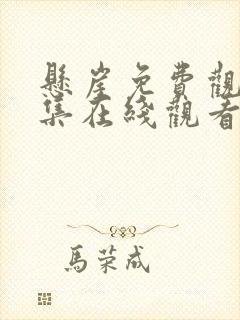 懸崖免費觀
集在綫觀看
馬荣成